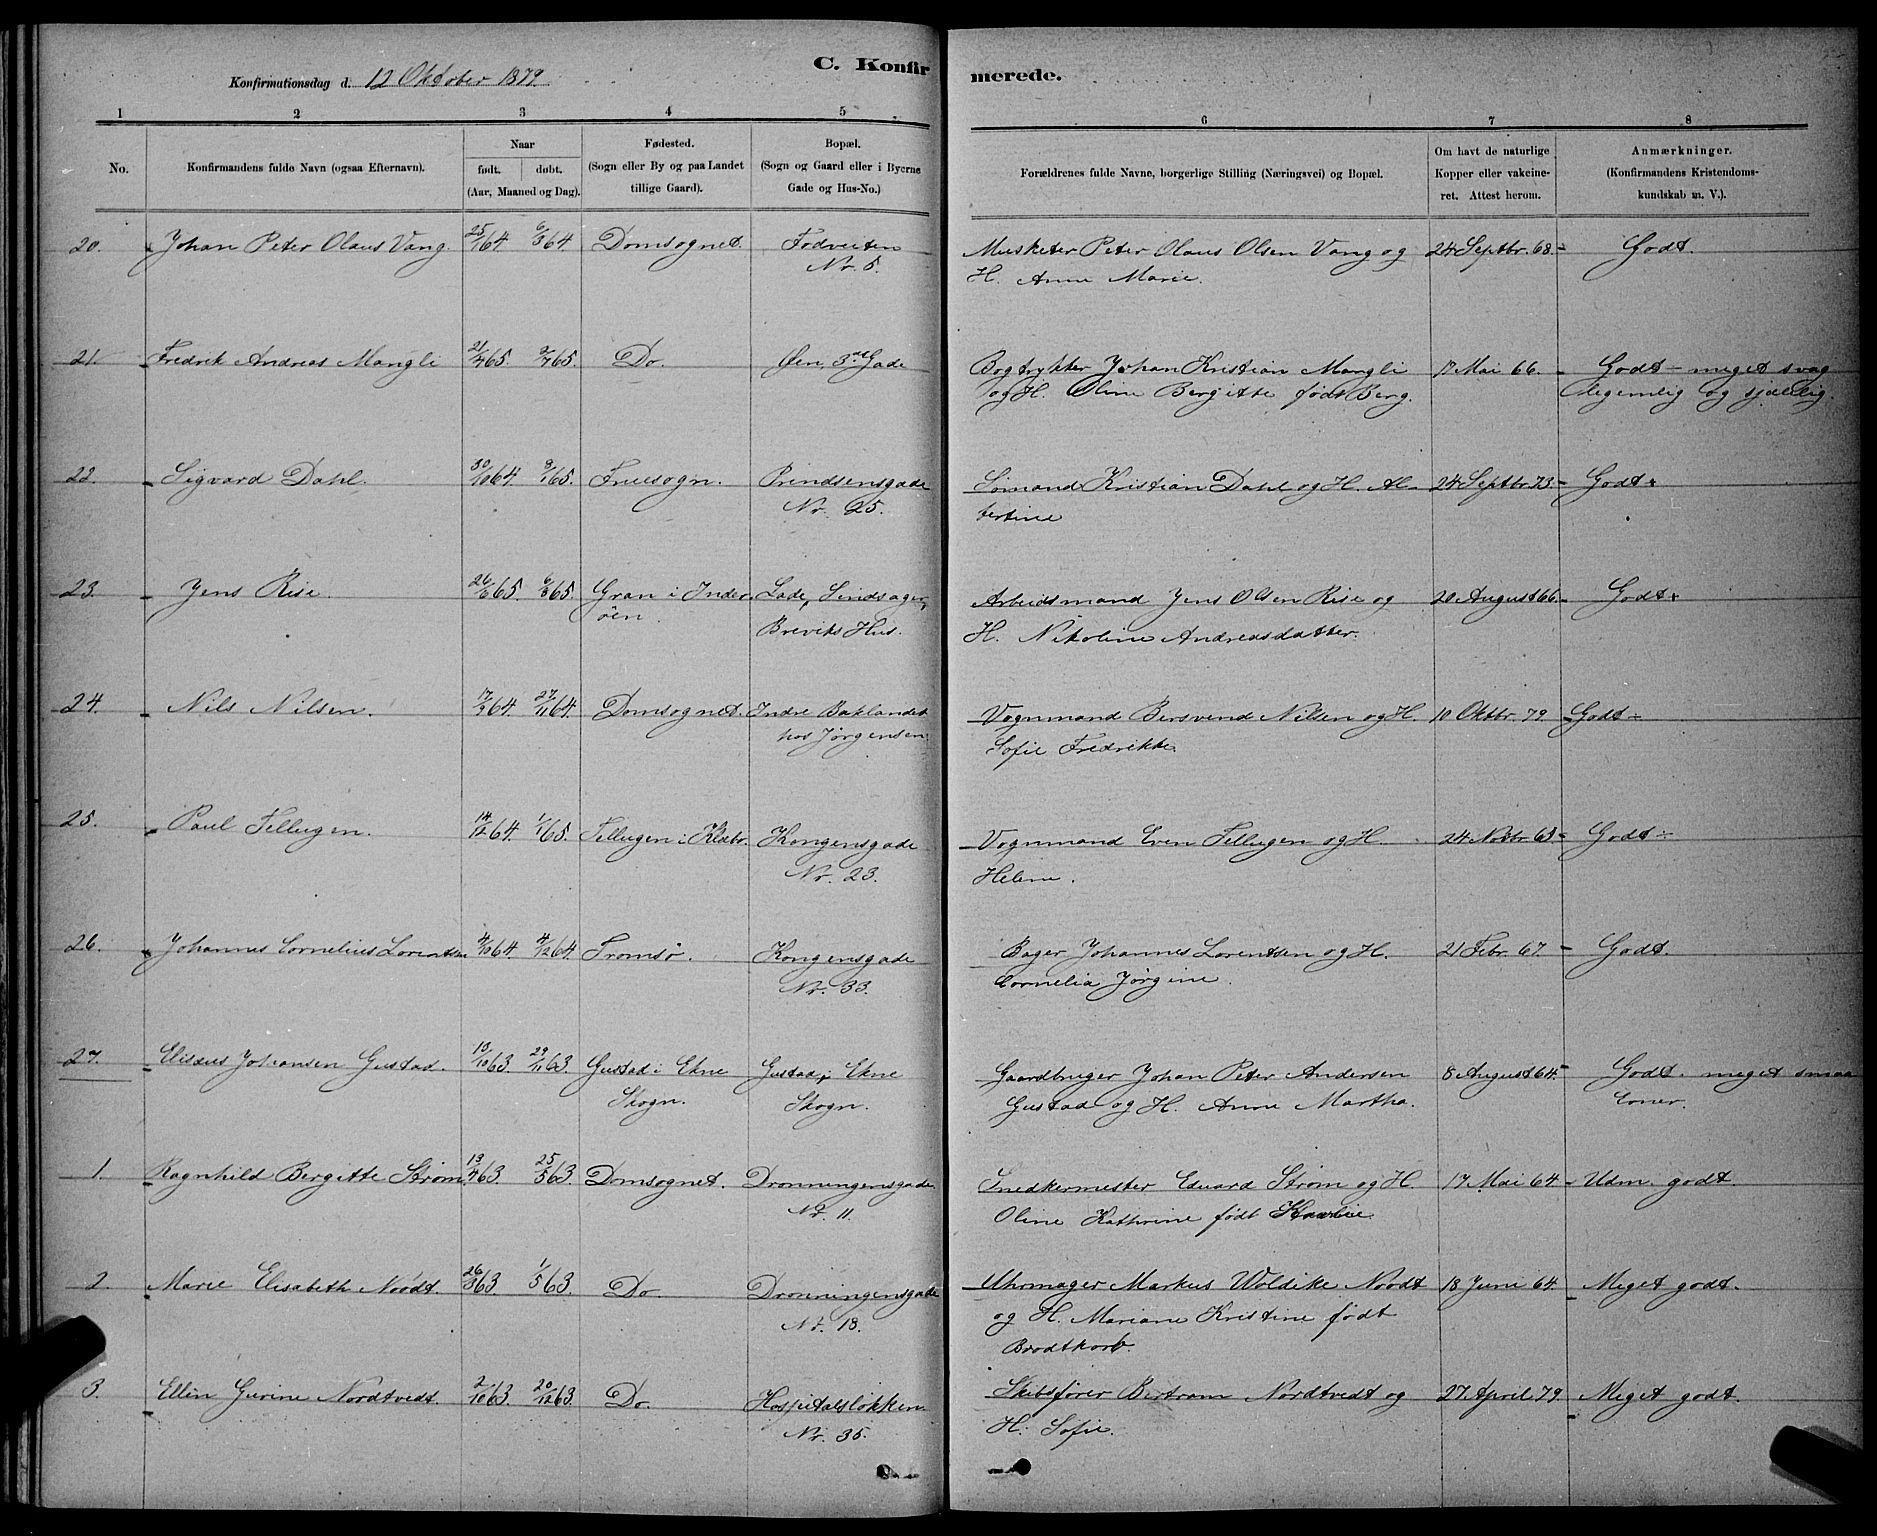 C. Konfirmerede.
Konfirmationsdag d. 12 Oktober 1879.
1 2 3 4 5 6 7 8
No.
Konfirmandens fulde Navn (ogsaa Efternavn).
Naar
født. døbt.
(Aar, Maaned og Dag).
Fødested.
(Sogn eller By og paa Landet
tillige Gaard).
Bopæl.
(Sogn og Gaard eller i Byerne
Gade og Hus-No.)
Forældrenes fulde Navne, borgerlige Stilling (Næringsvei) og Bopæl.
Om havt de naturlige
Kopper eller vakcine-
ret. Attest herom.
Anmærkninger.
(Konfirmandens Kristendoms-
kundskab m. V.).
20. Johan Peter Olaus Vang. 25/1 64 6/3 64 Domsognet. Fodveiten Musketer Peter Olaus Olsen Vang og 24 Septbr. 68. - Godt.
Nr. 5. H. Anne Marie.
21. Fredrik Andreas Mangli 21/4 65. 9/7 65. Do. Øen, 3die Gade Bogtrykker Johan Kristian Mangli 17 Mai 66. - Godt - meget svag
og H. Oline Bergitte født Berg. legemlig og sjælelig.
22. Sigvard Dahl. 30/10 64. 8/1 65. Fruesogn. Prindsensgade Sømand Kristian Dahl og H. Al- 24 Septbr. 73 - Godt
Nr. 25. bertine
23. Jens Rise. 26/6 65. 6/8 65. Gran i Inder- Lade, Lindsager, Arbeidsmand Jens Olsen Rise og 20 August 66. - Godt
øen. Breviks Hus. H. Nikoline Andreasdatter.
24. Nils Nilsen. 17/9 64. 27/11 64. Domsognet. Indre Baklandet Vognmand Bersvend Nilsen og H. 10 Oktbr. 79 Godt -
hos Jørgensen. Sofie Fredrikke.
25. Paul Tellugen. 14/12 64. 1/1 65. Tellugen i Klæbo. Kongensgade Vognmand Even Tellugen og H. 24 Novbr. 63 - Godt -
Nr. 23. Helene.
26. Johannes Cornelius Lorentsen 4/10 64. 4/12 64. Tromsø. Kongensgade Bager Johannes Lorentsen og H. 21 Febr. 67. - Godt.
Nr. 33. Cornelia Jørgine.
27. Elisæus Johansen Gustad. 13/10 63. 29/11 63. Gustad i Ekne Gustad i Ekne Gaardbruger Johan Peter Andersen 8 August 64. - Godt. meget smaa
Skogn. Skogn. Gustad og H. Anne Martha. Evner.
1. Ragnhild Bergitte Strøm. 13/4 63. 25/5 63. Domsognet. Dronningensgade Snedkermester Eduard Strøm og H. 17 Mai 64 - Udm. godt.
Nr. 11. Oline Kathrine født
2. Marie Elisabeth Noodt. 26/3 63. 1/5 63. Do. Dronningensgade Uhrmager Markus Woldike Noodt 18 Juni 64. - Meget godt.
Nr. 18. og H. Mariane Kristine født
Brodtkorb.
3. Ellen Gurine Nordtvedt. 2/10 63. 20/12 63. Do. Hospitalsløkken Skibsfører Bertram Nordtvedt og 27. April 79. Meget godt.
Nr. 35. H. Sofie.